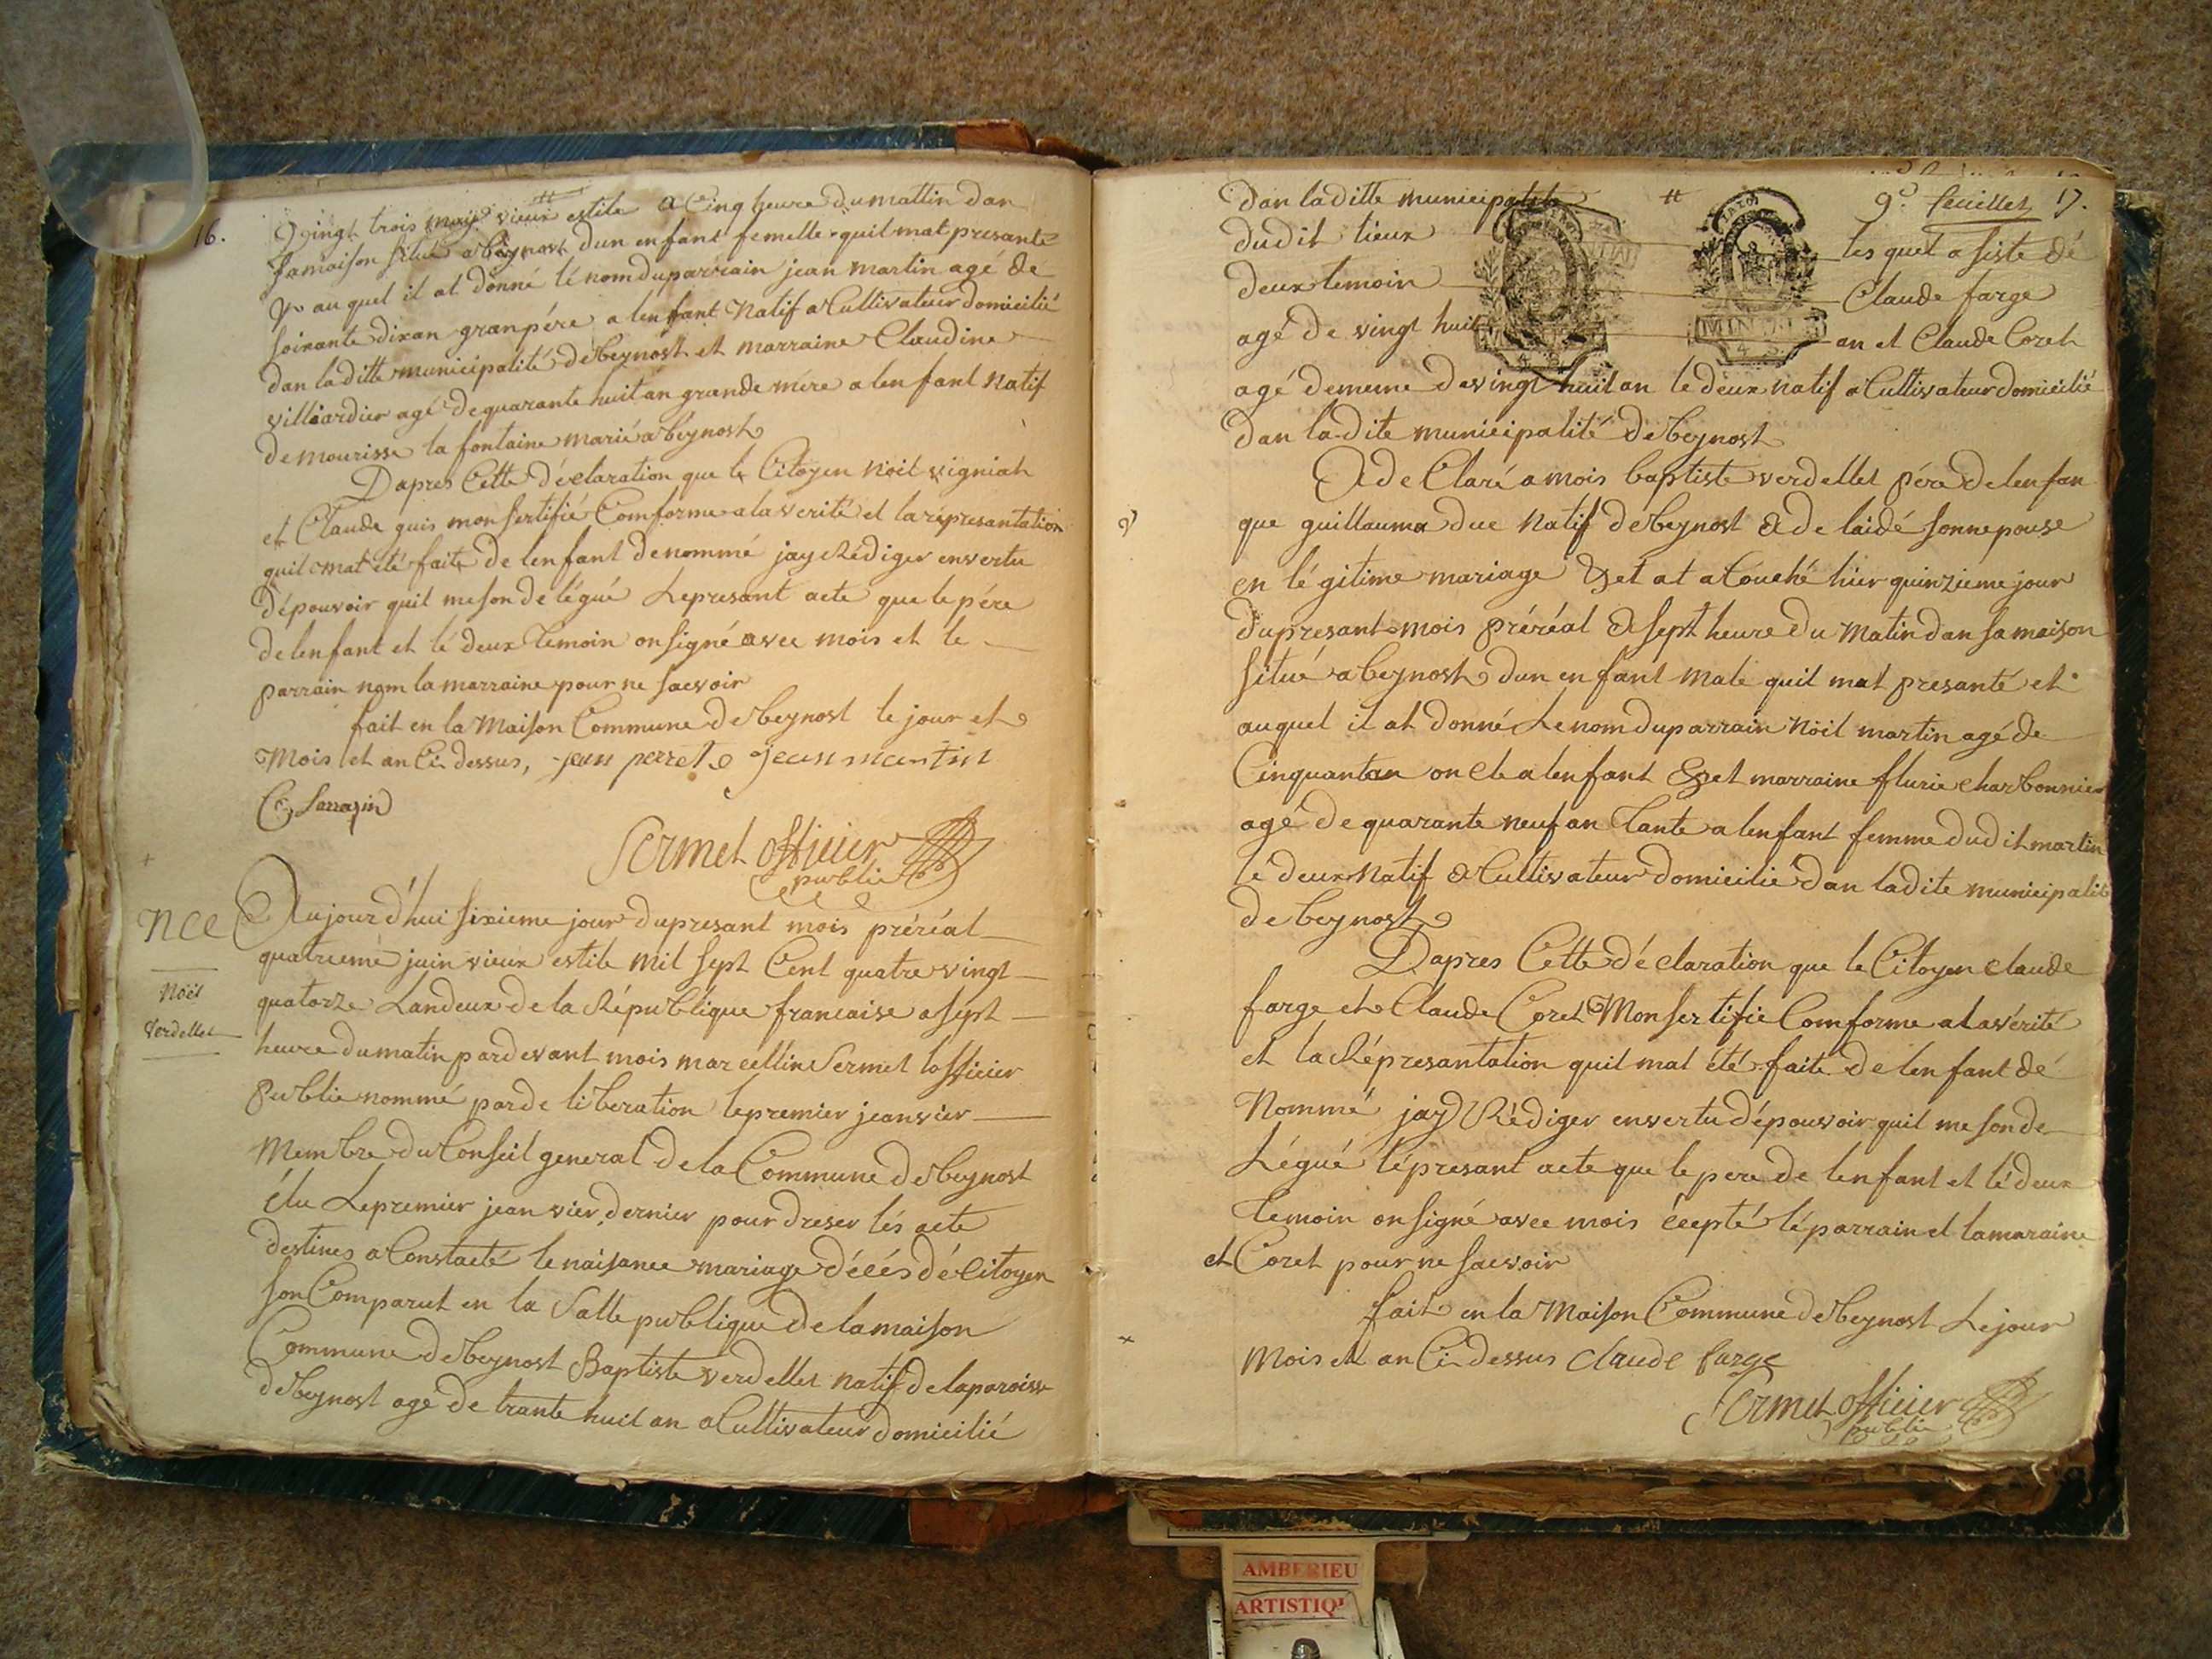 16.
vingt trois may vieux estile a Cinq heure dumattin dan
samaison situé a beynost dun enfant femelle quil mat presanté
auquel il at donné lé nom duparrain jean martin agé de
soixante dixan granpére a lenfant Natif & Cultivateur domicilié
dan laditte municipalité debeynost et marraine Claudine
villiardier agé dequarante huit an grande mére a lenfant Natif
demourisse la fontaine marié a beynost
Dapres Cette déclaration que le Citoyen Noil vigniah
et Claude guis mon sertifié Comforme alaverité et la répresantation
quil mat été faite de lenfant denommé jay Rédiger envertu
dépouvoir quil meson delégué Lepresant acte que le pére
delenfant et lé deux Temoin onsigné avec mois et le
parrain nom la marraine pour ne sacvoir
fait en la Maison Commune debeynost le jour et
Mois et an Ci dessus, jean perret jean martin
C. Sarrazin
Sermet officier
public
NCE
Noël
Verdellet
Aujourd'hui sixieme jour dupresant mois préréal
quatrieme juin vieux estile mil sept Cent quatre vingt
quatorze Landeux de la République francaise a sept
heure dumatin pardevant mois marcellin Sermet lofficier
Public nommé parde liberation lepremier jeanvier
Membre du Conseil general de la Commune debeynost
élu Lepremier jeanvier dernier pour dreser lés acte
destines a Constacté le naisance mariage décés dé Citoyen
son Comparut en la Salle publique de lamaison
Commune debeynost Baptiste verdellet natif delaparoisse
debeynost agé de trante huit an & Cultivateur domicilié
9e. feuillet 17.
dan laditte municipalité
dudit lieux lesquel a siste dé
deux temoin Claude farge
agé de vingt huit an et Claude Coret
agé dememe devingt huit an le deux natif & Cultivateur domicilié
dan la dite municipalité debeynost
A de Claré a mois baptiste verdellet pére delenfan
que guillauma duc Natif debeynost & de laidé sonnepouse
en légitime mariage et at acouché hier quinzieme jour
dupresant mois préréal & sept heure du Matin dan sa maison
situé a beynost dun enfant male quil mat presanté et
auquel il at donné Lenom duparrain Noil martin agé de
Cinquantan oncle a lenfant et marraine flurie charbonnier
agé dequarante neuf an Tante a lenfant femme dudit martin
lé deux Natif & Cultivateur domicilié dan ladite municipalité
debeynost
Dapres Cette déclaration que le Citoyen claude
farge et Claude Coret Mon sertifié Comforme a la vérité
et la Répresantation quil mat été faite de lenfant dé
Nommé jay Rédiger envertu dépouvoir quil me sonde
Légué lépresant acte que le pere de lenfant et lé deux
Temoin onsigné avec mois écepté léparrain et lamaraine
et Coret pour ne sacvoir
fait en la Maison Commune debeynost Lejour
Mois et an Ci dessus claude farge
Sermet officier
public
AMBERIEU
ARTISTIQ